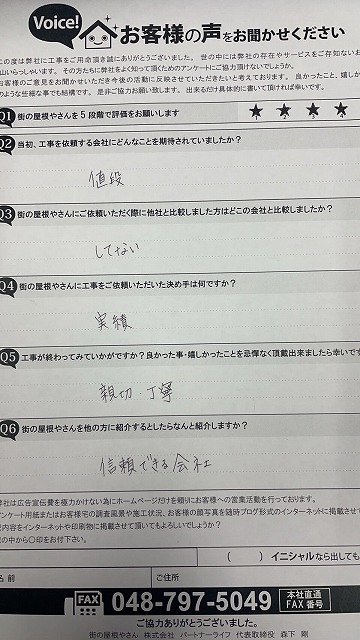 Voice! お客様の声をお聞かせください
の度は弊社に工事をご用命頂き誠にありがとうございました。世の中には弊社の存在やサービスをご存知ないお
山いらっしゃいます。その方たちに弊社をよく知って頂くためのアンケートにご協力頂けないでしょうか。
お客様のご意見をお聞かせいただき今後の活動に反映させていただきたいと考えております。良かったこと、嬉しか
のような些細な事でも結構です。是非ご協力お願い致します。出来るだけ具体的に書いて頂ければ幸いです。
Q1 街の屋根やさんを5段階で評価をお願いします ★ ★ ★ ★
Q2 当初、工事を依頼する会社にどんなことを期待されていましたか?
値段
Q3 街の屋根やさんにご依頼いただく際に他社と比較しました方はどこの会社と比較しましたか?
してない
Q4 街の屋根やさんに工事をご依頼いただいた決め手は何ですか?
実績
Q5 工事が終わってみていかがですか?良かった事・嬉しかったことを忌憚なく頂戴出来ましたら幸いです
親切・丁寧
Q6 街の屋根やさんを他の方に紹介するとしたらなんと紹介しますか?
信頼できる会社
弊社は広告宣伝費を極力かけない為にホームページだけを頼りにお客様への営業活動を行っております。
アンケート用紙またはお客様宅の調査風景や施工状況、お客様の顔写真を随時ブログ形式のインターネットに掲載させて
記内容をインターネットや印刷物に掲載させて頂いてもよろしいでしょうか?
記の中から〇印をお付下さい。
( ) イニシャルなら出しても
名前 ご住所
FAX 048-797-5049 本社直通 FAX番号
ご協力ありがとうございました。
街の屋根やさん 株式会社 パートナーライフ 代表取締役 森下 剛